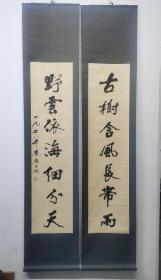 古樹含風長帶雨
野雲依海細分天
一九七八年